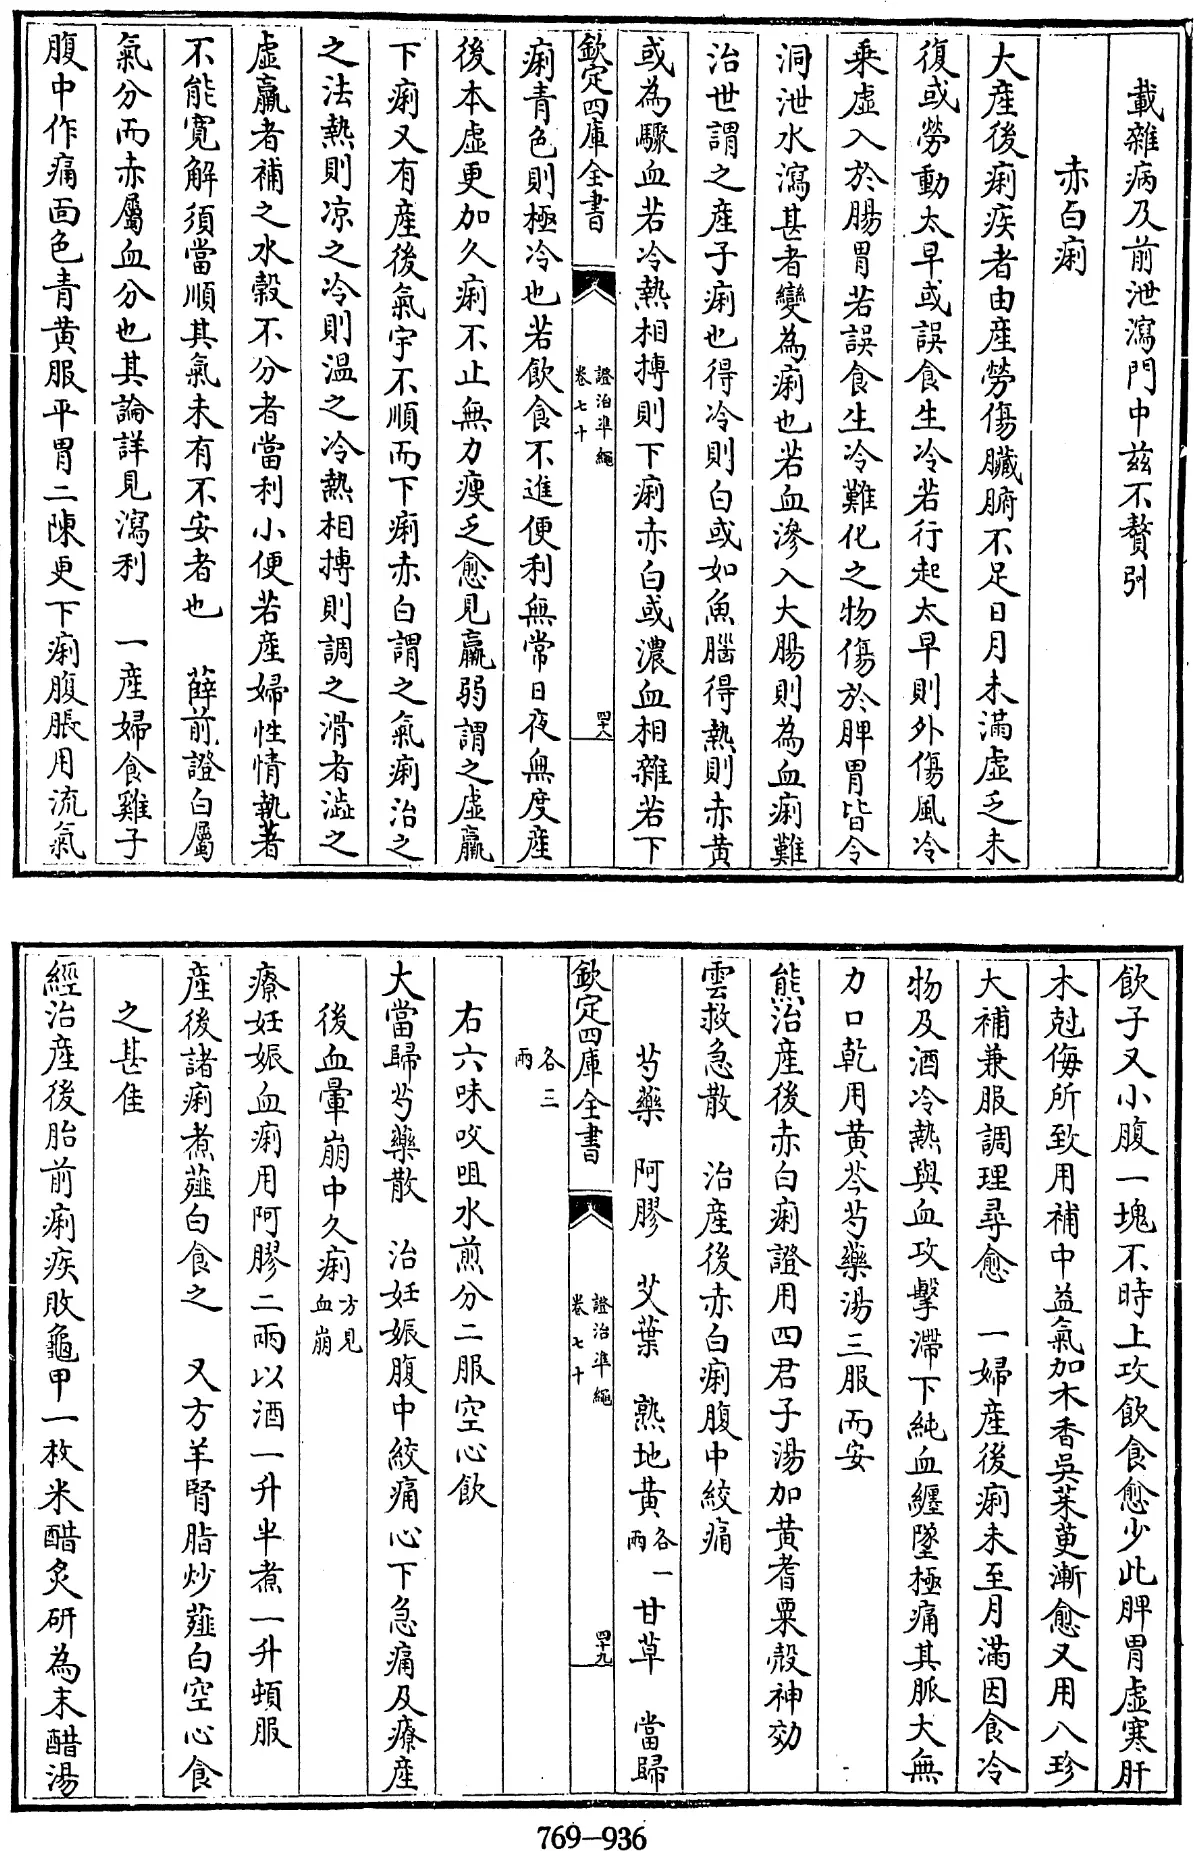 載雜病及前泄瀉門中兹不贅引
赤白痢
大産後痢疾者由産勞傷臟腑不足日月未滿虛乏未
復或勞動太早或誤食生冷若行起太早則外傷風冷
乗虛入於腸胃若誤食生冷難化之物傷於脾胃皆令
洞泄水瀉甚者變為痢也若血滲入大腸則為血痢難
治世謂之産子痢也得冷則白或如魚腦得熱則赤黄
或為驟血若冷熱相搏則下痢赤白或濃血相雜若下
欽定四庫全書 證治凖繩 卷七十 四十八
痢青色則極冷也若飲食不進便利無常日夜無度産
後本虛更加久痢不止無力瘦乏愈見羸弱謂之虛羸
下痢又有産後氣宇不順而下痢赤白謂之氣痢治之
之法熱則凉之冷則温之冷熱相搏則調之滑者澁之
虛羸者補之水穀不分者當利小便若産婦性情執著
不能寛解須當順其氣未有不安者也 薛前證白屬
氣分而赤屬血分也其論詳見瀉利 一産婦食雞子
腹中作痛面色青黄服平胃二陳更下痢腹脹用流氣
飲子又小腹一塊不時上攻飲食愈少此脾胃虛寒肝
木尅侮所致用補中益氣加木香吳茱萸漸愈又用八珍
大補兼服調理尋愈 一婦産後痢未至月滿因食冷
物及酒冷熱與血攻擊滯下純血纒墜極痛其脈大無
力口乾用黄芩芍藥湯三服而安
熊治産後赤白痢證用四君子湯加黄耆粟殻神効
雲救急散 治産後赤白痢腹中絞痛
芍藥 阿膠 艾葉 熟地黄各一兩 甘草 當歸
欽定四庫全書 證治凖繩 卷七十 四十九
各三兩
右六味㕮咀水煎分二服空心飲
大當歸芍藥散 治妊娠腹中絞痛心下急痛及療産
後血暈崩中久痢方見血崩
療妊娠血痢用阿膠二兩以酒一升半煮一升頓服
産後諸痢煮薤白食之 又方羊腎脂炒薤白空心食
之甚佳
經治産後胎前痢疾敗龜甲一枚米醋炙研為末醋湯
769—936